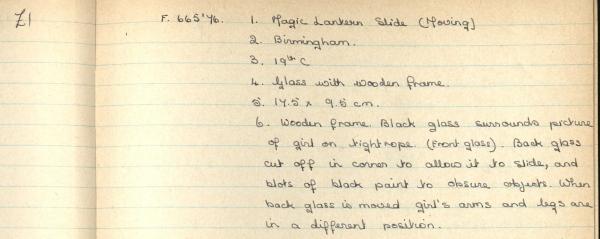 Z1 F. 665'76. 1. Magic Lantern Slide (Moving)
2. Birmingham.
3. 19th C
4. Glass with wooden frame.
5. 17.5 x 9.5 cm.
6. Wooden frame. Black glass surrounds picture
of girl on tightrope (Front glass). Back glass
cut off in corner to allow it to slide, and
blots of black paint to obsure objects. When
back glass is moved girl's arms and legs are
in a different position.